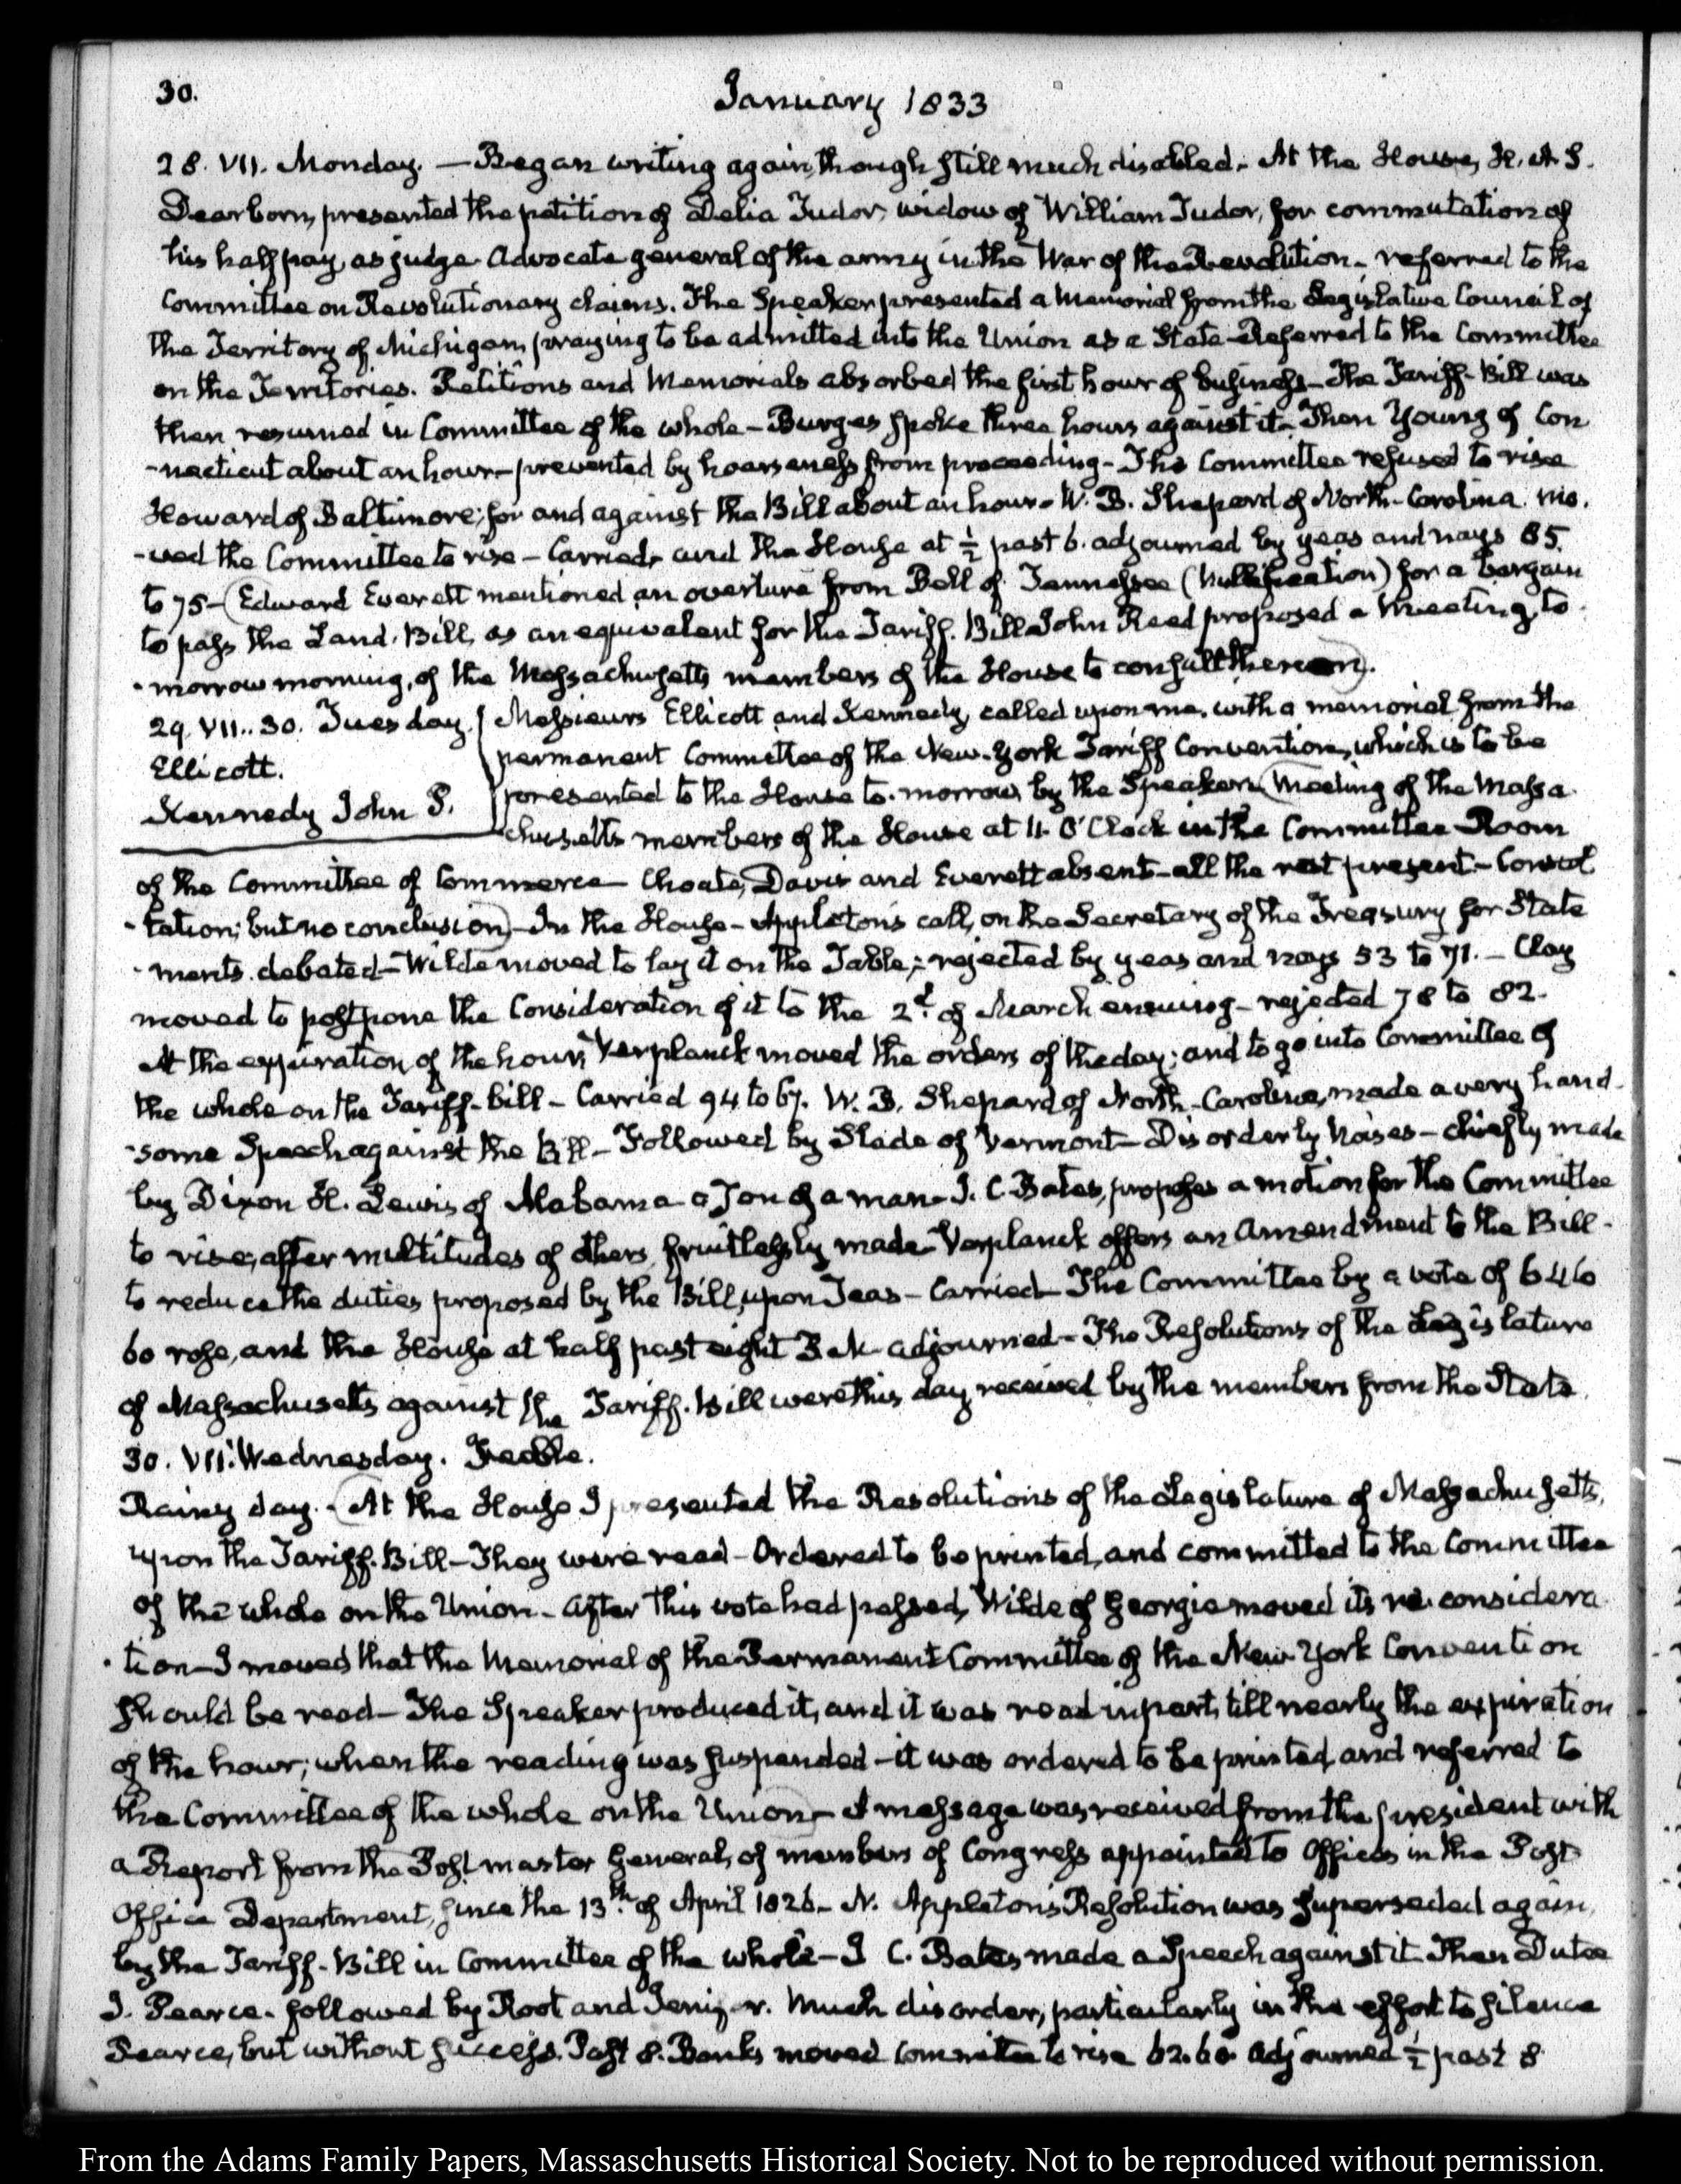 30.
January 1833
28. VII. Monday. — Began writing again, though still much disabled. At the House, H. A. S.
Dearborn, presented the petition of Delia Tudor, widow of William Tudor, for commutation of
his half pay, as judge Advocate general of the army in the War of the Revolution – referred to the
Committee on Revolutionary claims. The Speaker presented a Memorial from the Legislative Council of
the Territory of Michigan, praying to be admitted into the Union as a State – Referred to the Committee
on the Territories. Petitions and Memorials absorbed the first hour of business – The Tariff-Bill was
then resumed in Committee of the whole – Burges spoke three hours against it – Then Young of Con
-necticut about an hour – prevented by hoarseness from proceeding – The Committee refused to rise
Howard of Baltimore, for and against the Bill about an hour – W. B. Shepard of North-Carolina mo.
-ved the Committee to rise – Carried, and the House at ½ past 6. adjourned by yeas and nays 85.
to 75 – (Edward Everett mentioned an overture from Bell of Tennessee (Nullification) for a bargain
to pass the Land-Bill, as an equivalent for the Tariff-Bill John Reed proposed a Meeting, to
-morrow morning, of the Massachusetts members of the House to consult thereon).
29. VII..30. Tuesday. Messieurs Ellicott and Kennedy, called upon me, with a memorial from the
Ellicott. permanent Committee of the New-York Tariff Convention, which is to be
Kennedy John P. presented to the House to-morrow, by the Speaker. (Meeting of the Massa
chusetts members of the House at 11. O'Clock in the Committee Room
of the Committee of Commerce – Choate, Davis and Everett absent – all the rest present – Consul
-tation; but no conclusion) – In the House – Appleton's call, on the Secretary of the Treasury for State
-ments debated – Wilde moved to lay it on the Table; rejected by yeas and nays 53 to 71. – Clay
moved to postpone the Consideration of it to the 2d. of March ensuing – rejected 78 to 82.
At the expiration of the hour, Verplanck moved the orders of the day; and to go into Committee of
the whole on the Tariff-bill – Carried 94 to 67. W. B. Shepard of North-Carolina, made a very hand-
-some Speech against the Bill – Followed by Slade of Vermont – Disorderly Noises – chiefly made
by Dixon H. Lewis, of Alabama a Ton of a man – I. C. Bates, proposes a motion for the Committee
to rise, after multitudes of others fruitlessly made – Verplanck offers an Amendment to the Bill –
to reduce the duties proposed by the Bill, upon Teas – Carried – The Committee by a vote of 64 to
60 rose, and the House at half past eight P.M. adjourned – The Resolutions of the Legislature
of Massachusetts against the Tariff-Bill were this day received by the members from the State.
30. VII. Wednesday. Treable.
Rainy day. – (At the House I presented the Resolutions of the Legislature of Massachusetts,
upon the Tariff-Bill – They were read – Ordered to be printed, and committed to the Committee
of the whole on the Union – After this vote had passed, Wilde of Georgia moved its re considera
-tion – I moved that the Memorial of the Permanent Committee of the New York Convention
should be read – The Speaker produced it, and it was read in part, till nearly the expiration
of the hour; when the reading was suspended – it was ordered to be printed, and referred to
the Committee of the whole on the Union) – A message was received from the president with
a Report from the Post master General, of members of Congress appointed to Offices in the Post
Office Department, since the 13th. of April 1826 – N. Appleton's Resolution was superseded again,
by the Tariff-Bill in Committee of the whole – I C. Bates made a Speech against it Then Dutee
I. Pearce – followed by Root and Jenifer. Much disorder, particularly in the effort to silence
Pearce, but without success. Past 8. Banks moved Committee to rise 62. 60. Adjourned ½ past 8
From the Adams Family Papers, Massachusetts Historical Society. Not to be reproduced without permission.